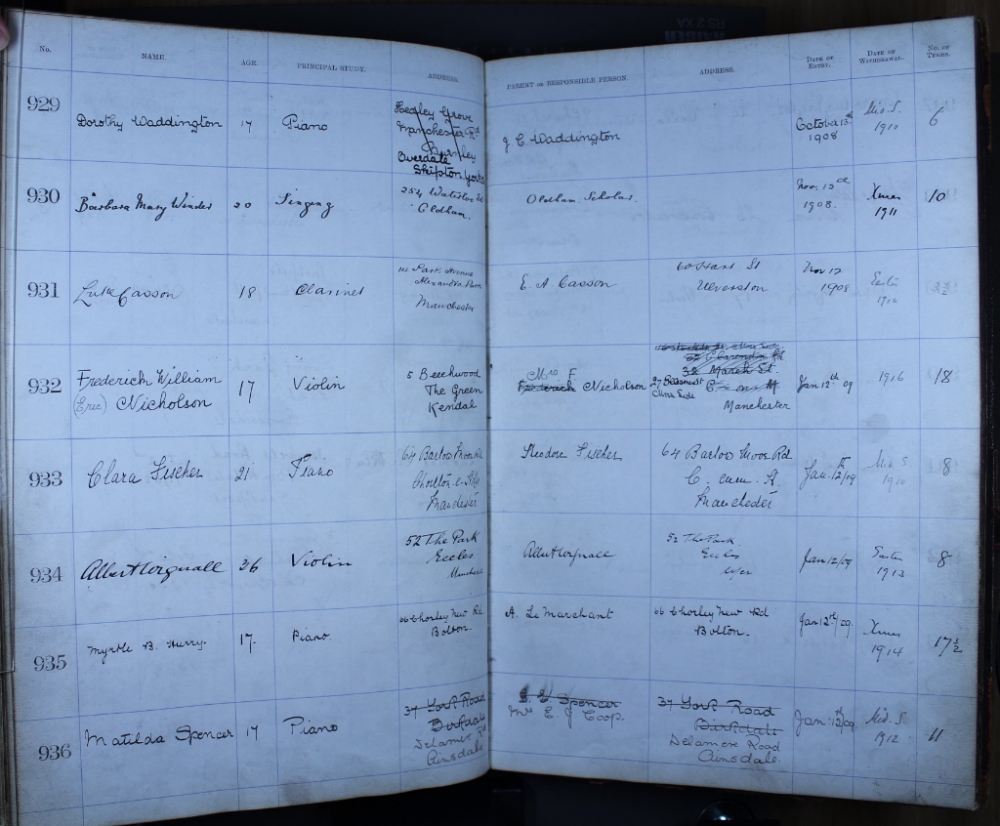 No.
NAME.
AGE.
PRINCIPAL STUDY.
ADDRESS.
PARENT OR RESPONSIBLE PERSON.
ADDRESS.
DATE OF
ENTRY.
DATE OF
WITHDRAWAL.
NO. OF
TERMS.
929
Dorothy Waddington
17
Piano
Grove
Manchester Rd
Burnley
Overdale
Skipton Yorks
J C Waddington
October 13th
1908
Mid. S.
1910
6
930
Barbara Mary Winder
20
Singing
254 Waterloo St
Oldham.
Oldham Scholar.
Nov.
1908.
Xmas
1911
10
931
Luke Casson
18
Clarinet
Park Avenue
Alexandra Park
Manchester
E. A Casson
Hart St
Ulverston
Nov 12
1908
Easter
1910
932
Frederick William
(Eric) Nicholson
17
Violin
5 Beechwood
The Green
Kendal
Mrs F
Frederick Nicholson
38 March St.
Manchester
Jan 12th 09
1916
18
933
Clara Fischer
21
Piano
64 Barlow Moor Rd
Chorlton-c-Hdy
Manchester
Theodore Fischer
64 Barlow Moor Rd
C. cum. H.
Manchester
Jan. 12th/09
Mid S
1910
8
934
26
Violin
52 The Park
Eccles
Manchester
52 The Park
Eccles
Jan 12/09
Easter
1913
8
935
Myrtle B. Hurry.
17.
Piano.
66 Chorley New Rd
Bolton.
A. Le Marchant
66 Chorley New Rd
Bolton.
Jan 12th/09.
Xmas
1914
17½
936
Matilda Spencer
17
Piano
37 York Road
Birkdale
Delamere Rd
Ainsdale
Spencer
Mrs E J Coop.
37 York Road
Birkdale
Delamere Road
Ainsdale.
Jan. 12th/09
Mid. S.
1912
11